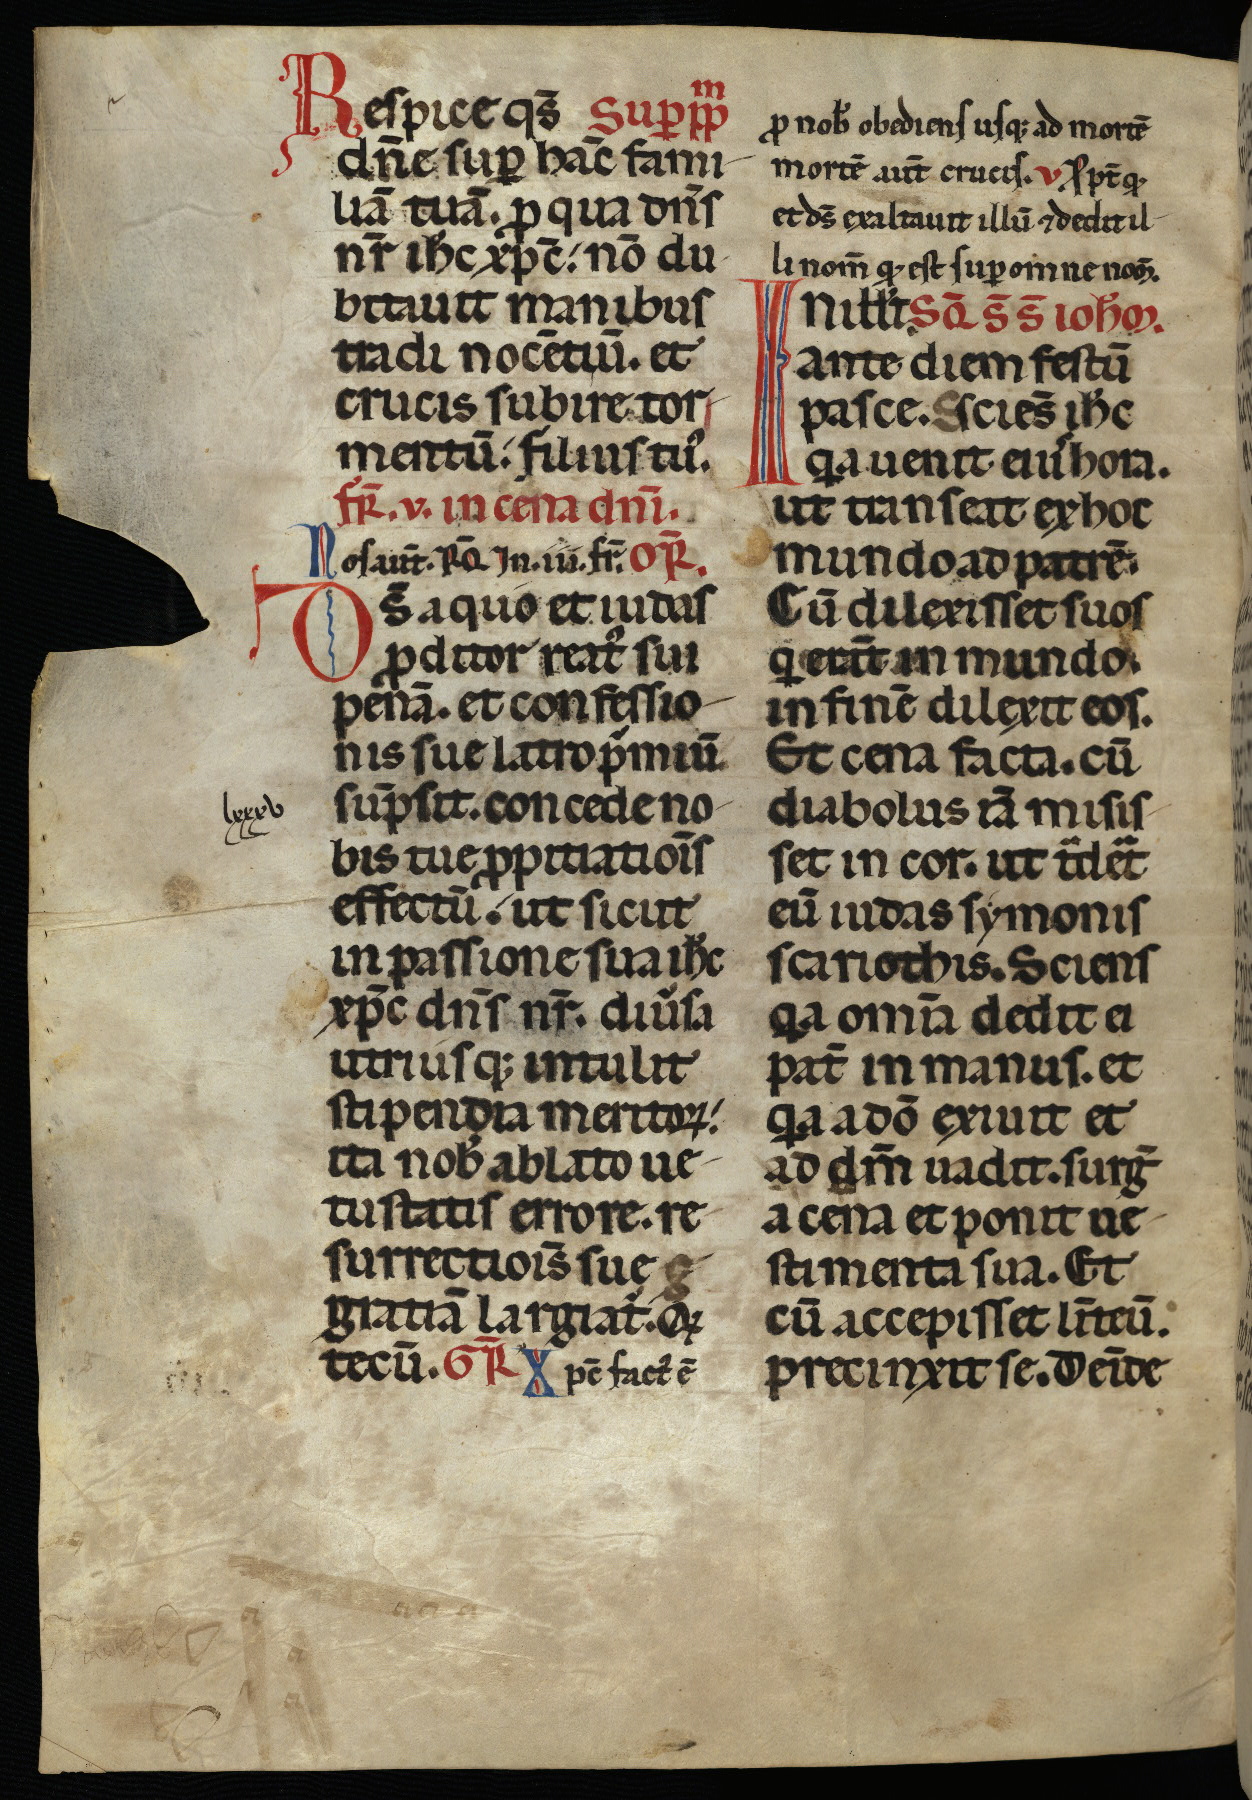 Respice qs̄ Sup̱ ꝓpm
dn̄e sup̱ hāc fami-
liā tuā. ꝓ qua dn̄s
nr̄ ih̄c xp̄c: nō du-
bitauit manibus
tradi nocētiū. et
crucis subire tor-
mentū: filius tuꝰ.
fr̄. v. in cena dn̄i.
Nos aut̄. R̄Q In. iii. fr̄. OR̄.
Ds̄ a quo et iudas
ꝓditor reatꝰ sui
penā. et confessio-
nis sue latro p̄miū
sūpsit. concede no-
lxxxv
bis tue ꝓpitiatiōis
effectū: ut sicut
in passione sua ih̄c
xp̄c dn̄s nr̄. diūsa
utriusq; intulit
stipendia meritoꝝ:
ita nob̄ ablato ue-
tustatis errore. re-
surrectiōis sue g
gratiā largiat̄. Q
tecū. GR̄ Xpc̄ factꝰ ē
ꝓ nob̄ obediens usq; ad mortē
mortē aut̄ crucis. v ꝓpt̄ qꝫ
et ds̄ exaltauit illū ⁊ dedit il-
li nom̄ qꝫ est sup̱ omne nom̄.
In ill̄ t̄ SQ̄ S̄ S̄ ioh̄m.
ante diem festū
pasce. Scies̄ ih̄c
qꝫa uenit eiuꝰ hora.
ut transeat ex hoc
mundo ad patrē.
Cū dilexisset suos
qͥ erāt in mundo.
in finē dilexit eos.
Et cena facta. cū
diabolus iā misis-
set in cor. ut t̄det̄
eū iudas symonis
scariothis. Sciens
qꝫa om̄ia dedit ei
pat̄ in manus. et
qꝫa a dō exiuit et
ad dm̄ uadit. surḡ
a cena et ponit ue-
stimenta sua. Et
cū accepisset līteū.
precinxit se. Deīde